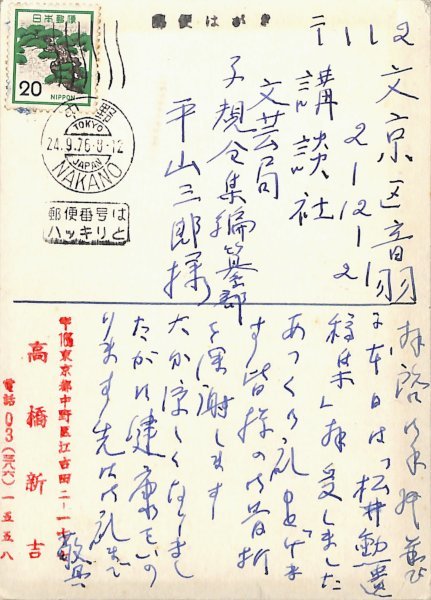 郵便はがき
日本郵便
20
NIPPON
中野
TOKYO
24.9.76.8-12
JAPAN
NAKANO
郵便番号は
ハッキリと
〒112
文京区音羽
2-12-2
講談社
文芸局
子規全集編纂部
平山三郎様
拝啓
本日は「松井勲遺
稿集」拝受しました
あつく御礼申上げま
す 皆様の御骨折
を深謝します
大分涼しくなりまし
たがお健康をいの
ります 先は御礼まで
敬具
東京都中野区江古田二ー一
高橋新吉
電話03(三八六)一五五八